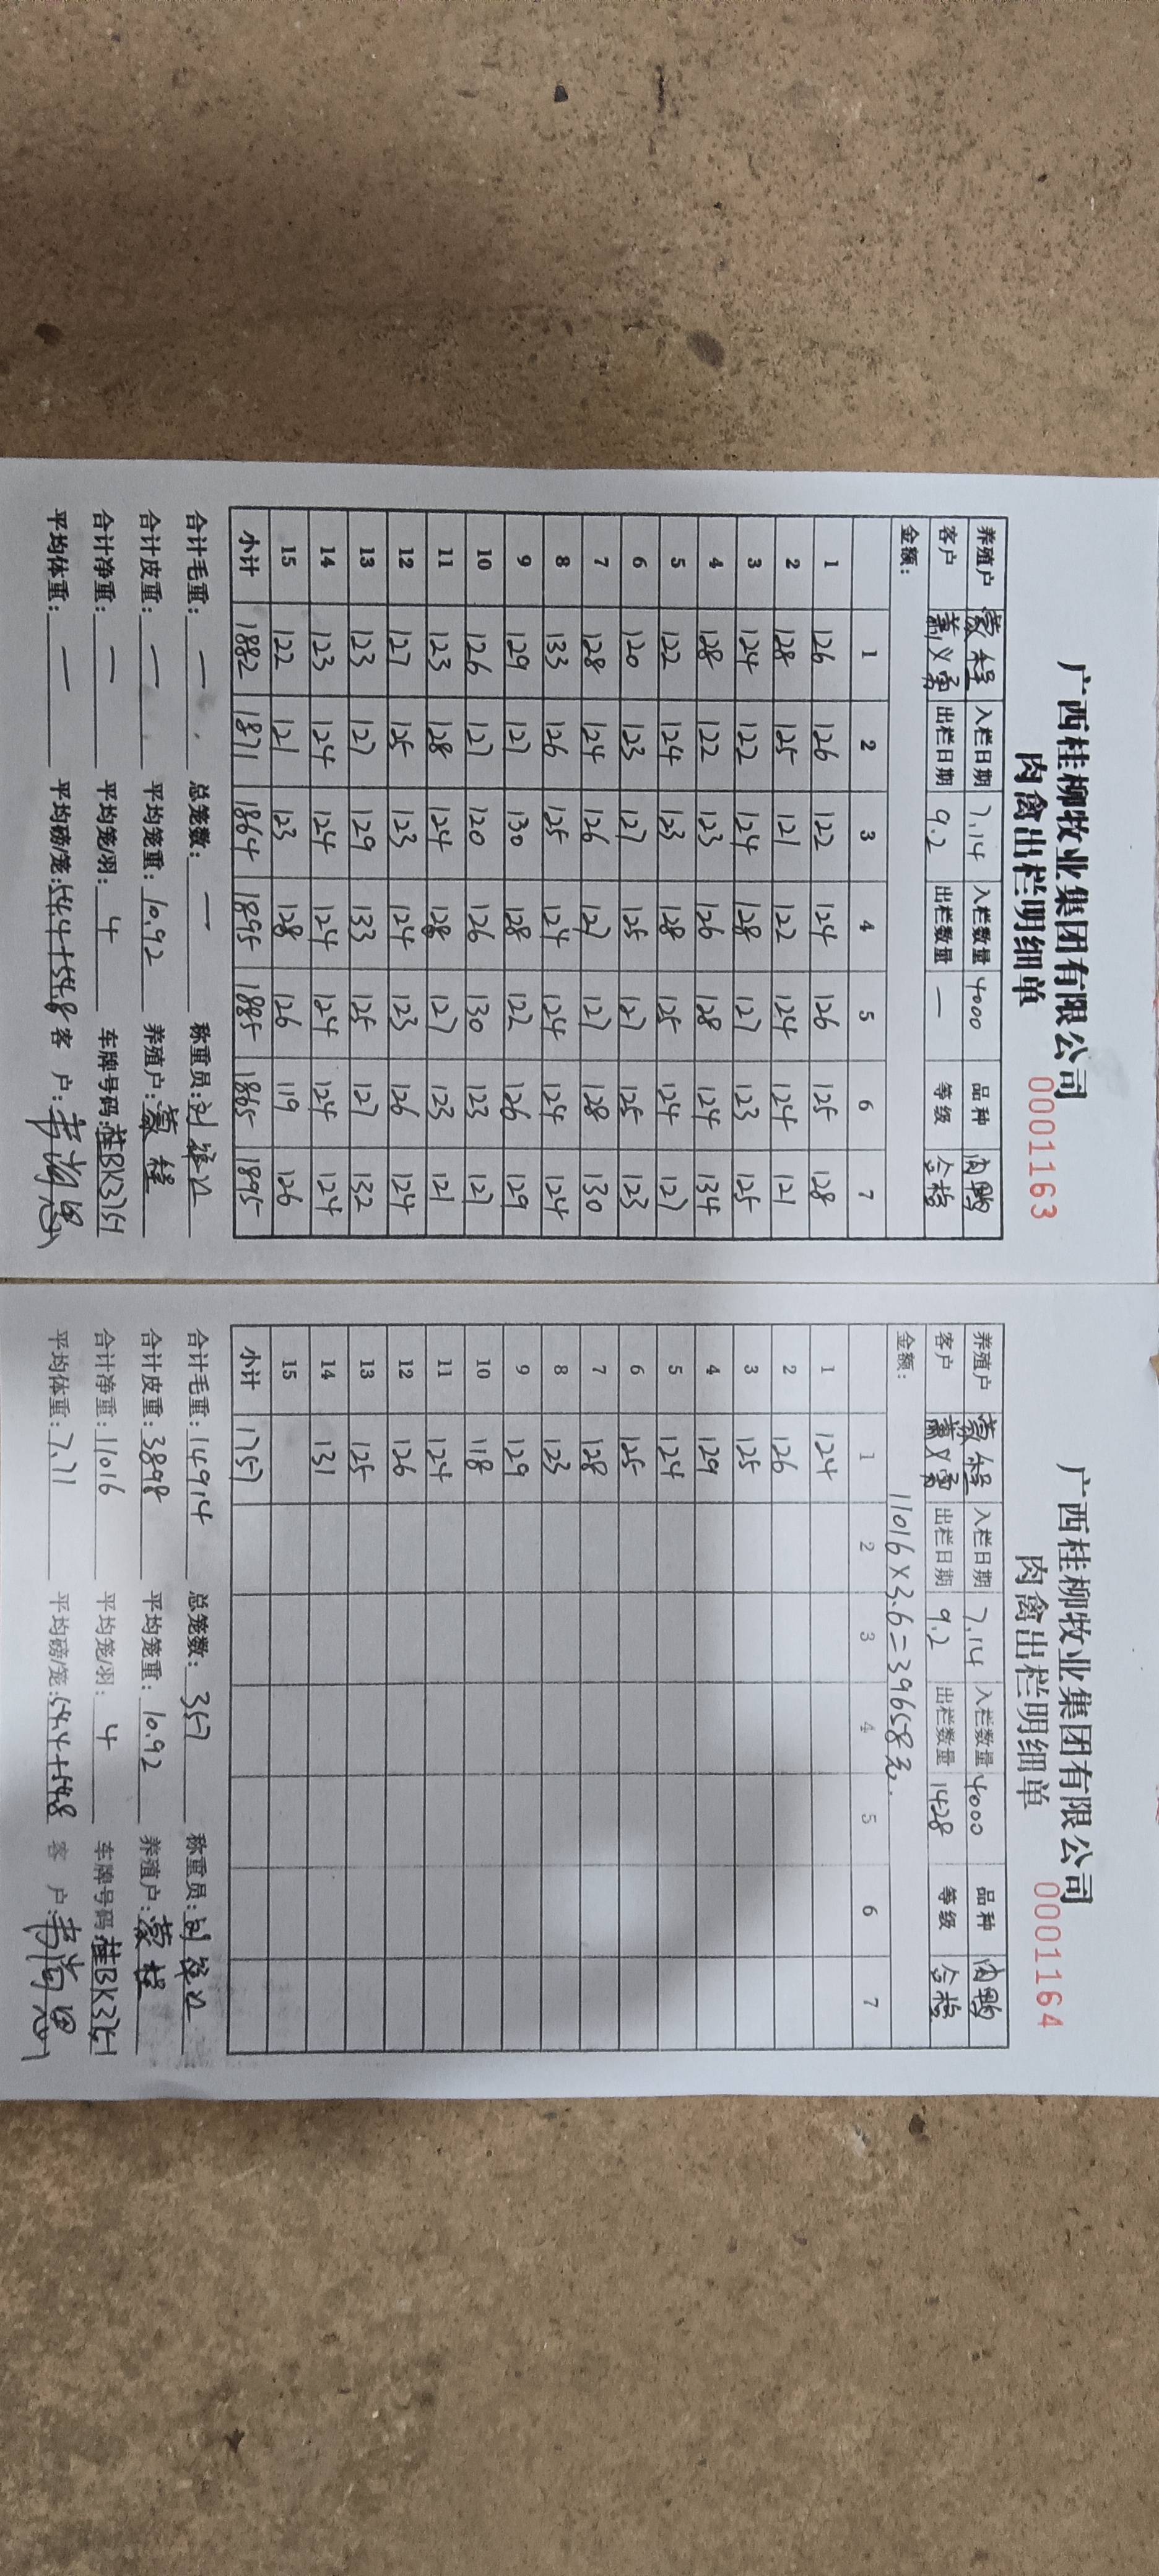 广西桂柳牧业集团有限公司
肉禽出栏明细单 0001163
养殖户 入栏日期 7.14 入栏数量 4000 品种 肉鸭
客户 出栏日期 9.2 出栏数量 — 等级 合格
金额:
1 2 3 4 5 6 7
1 126 126 122 124 126 125 128
2 128 125 121 122 124 124 121
3 124 122 124 128 127 123 125
4 128 122 123 126 128 124 134
5 122 124 123 128 125 124 127
6 120 123 127 125 127 125 123
7 128 124 126 127 127 128 130
8 133 126 125 124 124 124 124
9 129 127 130 128 122 126 129
10 126 127 120 126 130 123 127
11 123 128 124 128 127 123 121
12 127 125 123 124 123 126 124
13 123 127 129 133 125 127 132
14 123 124 124 124 124 124 124
15 122 121 123 128 126 119 126
小计 1882 1871 1864 1895 1885 1865 1895
合计毛重: — 总笼数: — 称重员:
合计皮重: — 平均笼重: 10.92 养殖户:
合计净重: — 平均笼/羽: 4 车牌号码:
平均体重: — 平均磅/笼: 54.4+54.8 客 户:
广西桂柳牧业集团有限公司
肉禽出栏明细单 0001164
养殖户 入栏日期 7.14 入栏数量 4000 品种 肉鸭
客户 出栏日期 9.2 出栏数量 1428 等级 合格
金额: 11016×3.6=39658元.
1 2 3 4 5 6 7
1 124
2 126
3 125
4 129
5 124
6 125
7 128
8 123
9 129
10 118
11 124
12 126
13 125
14 131
15
小计 1757
合计毛重: 14914 总笼数: 357 称重员:
合计皮重: 3898 平均笼重: 10.92 养殖户:
合计净重: 11016 平均笼/羽: 4 车牌号码:
平均体重: 7.71 平均磅/笼: 54.4+54.8 客 户: